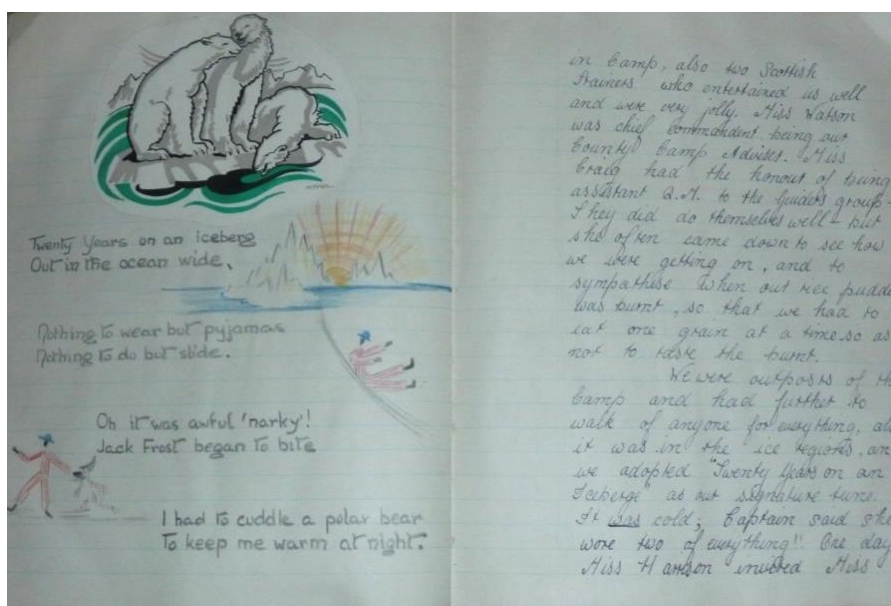 Twenty Years on an iceberg
Out in the ocean wide,
Nothing to wear but pyjamas
Nothing to do but slide.
Oh it was awful 'narky'!
Jack Frost began to bite
I had to cuddle a polar bear
To keep me warm at night.
in Camp, also two Scottish
Trainers who entertained us well
and were very jolly. Miss Watson
was chief commandent, being our
County Camp Adviser. Miss
Craig had the honour of being
assistant Q.M. to the Guiders group.
They did do themselves well - but
she often came down to see how
we were getting on, and to
sympathise when our rice pudd
was burnt, so that we had to
eat one grain at a time so as
not to taste the burnt.
We were outposts of th
Camp and had further to
walk of anyone for everything, al
it was in the ice regions, an
we adopted "Twenty Years on an
Iceberge" as our signature tune.
It was cold; Captain said she
wore two of everything!! One day
Miss Harrison invited Miss